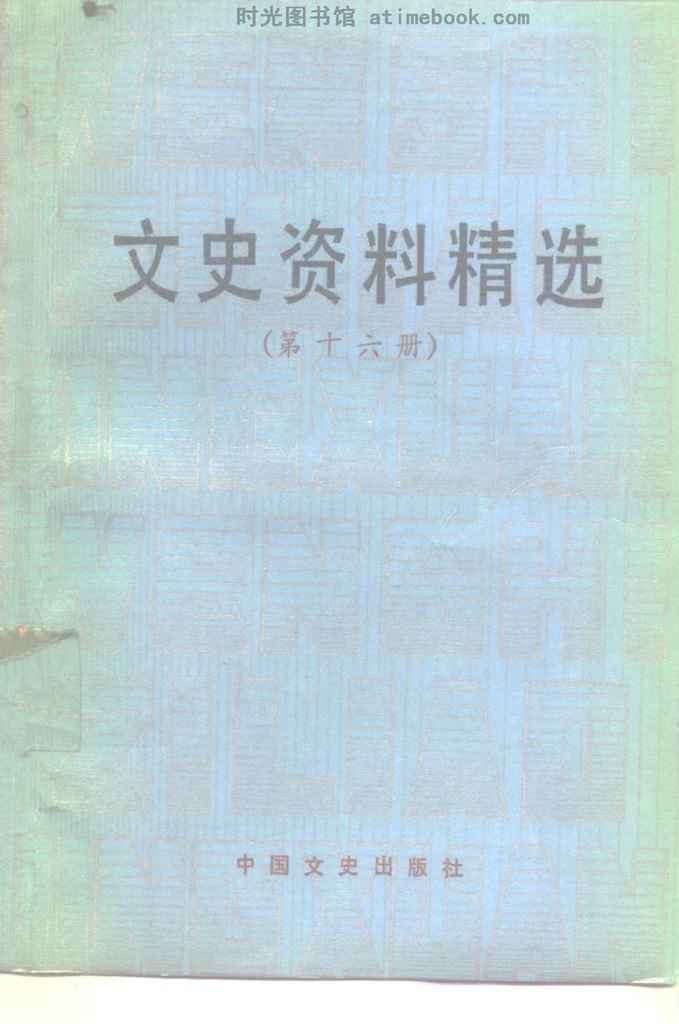 时光图书馆 atimebook.com
文史资料精选
(第十六册)
中国文史出版社